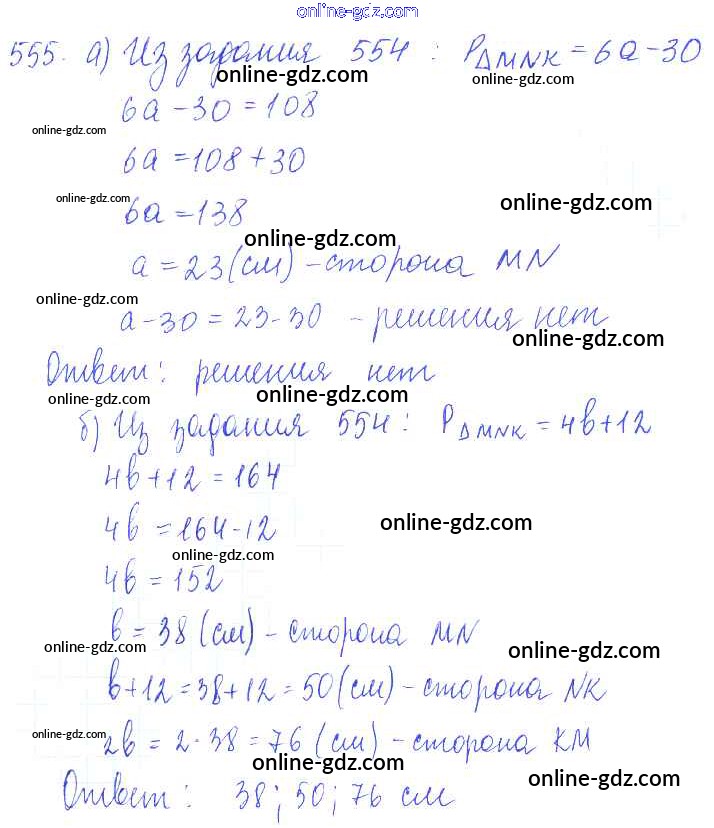 online-gdz.com
555. а) Из задания 554 : P△MNK = 6a - 30
online-gdz.com online-gdz.com
6a - 30 = 108
online-gdz.com
6a = 108 + 30
online-gdz.com online-gdz.com
6a = 138
online-gdz.com
a = 23 (см) - сторона MN
online-gdz.com
a - 30 = 23 - 30 - решения нет
online-gdz.com
Ответ: решения нет
online-gdz.com online-gdz.com
б) Из задания 554 : P△MNK = 4b + 12
4b + 12 = 164
4b = 164 - 12
online-gdz.com
online-gdz.com
4b = 152
b = 38 (см) - сторона MN
online-gdz.com online-gdz.com
b + 12 = 38 + 12 = 50 (см) - сторона NK
online-gdz.com
2b = 2 · 38 = 76 (см) - сторона KM
online-gdz.com online-gdz.com
Ответ : 38 ; 50 ; 76 см